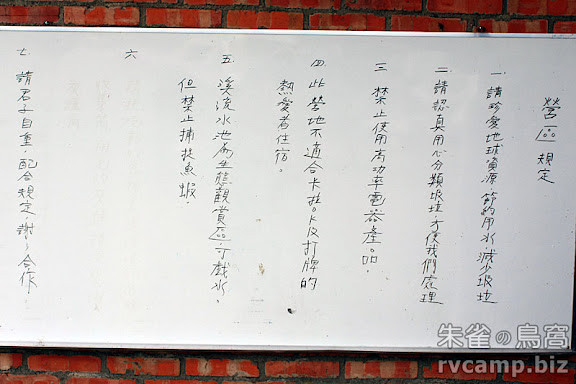 營區規定
一 請珍愛地球資源.節約用水.減少垃圾
二 請認真用心分類垃圾.方便我們處理
三 禁止使用高功率電器產品.
四 此營地不適合卡拉OK及打牌的
熱愛者住宿。
五 溪流水池為生態觀賞區.可戲水.
但禁止捕捉魚蝦.
六
七 請君子自重,配合規定,謝謝合作.
朱雀の鳥窩
rvcamp.biz